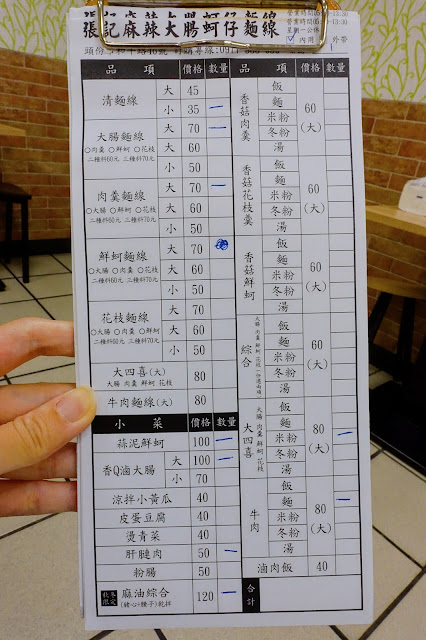 張記麻辣大腸蚵仔麵線
頭份
內用 外帶
品 項 價格 數量
清麵線
大 45
小 35
大腸麵線
○肉羹 ○鮮蚵 ○花枝
二種料60元 三種料70元
大 70
大 60
小 50
肉羹麵線
○大腸 ○鮮蚵 ○花枝
二種料60元 三種料70元
大 70
大 60
小 50
鮮蚵麵線
○大腸 ○肉羹 ○花枝
二種料60元 三種料70元
大 70
大 60
小 50
花枝麵線
○大腸 ○肉羹 ○鮮蚵
二種料60元 三種料70元
大 70
大 60
小 50
大四喜(大)
大腸 肉羹 鮮蚵 花枝
80
牛肉麵線(大) 80
小 菜 價格 數量
蒜泥鮮蚵 100
香Q滷大腸
大 100
小 70
涼拌小黃瓜 40
皮蛋豆腐 40
燙青菜 40
肝腱肉 50
粉腸 50
秋冬限定 麻油綜合
120
品 項 價格 數量
香菇肉羹
飯
麵
米粉
冬粉
湯
60
(大)
香菇花枝羹
飯
麵
米粉
冬粉
湯
60
(大)
香菇鮮蚵
飯
麵
米粉
冬粉
湯
60
(大)
綜合
飯
麵
米粉
冬粉
湯
60
(大)
大四喜
大腸 肉羹 鮮蚵 花枝
飯
麵
米粉
冬粉
湯
80
(大)
牛肉
飯
麵
米粉
冬粉
湯
80
(大)
滷肉飯 40
合計